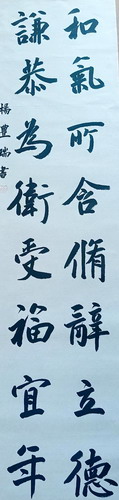 和氣所含脩辭立德
謙恭為衛受福宜年
楊豊瑞書